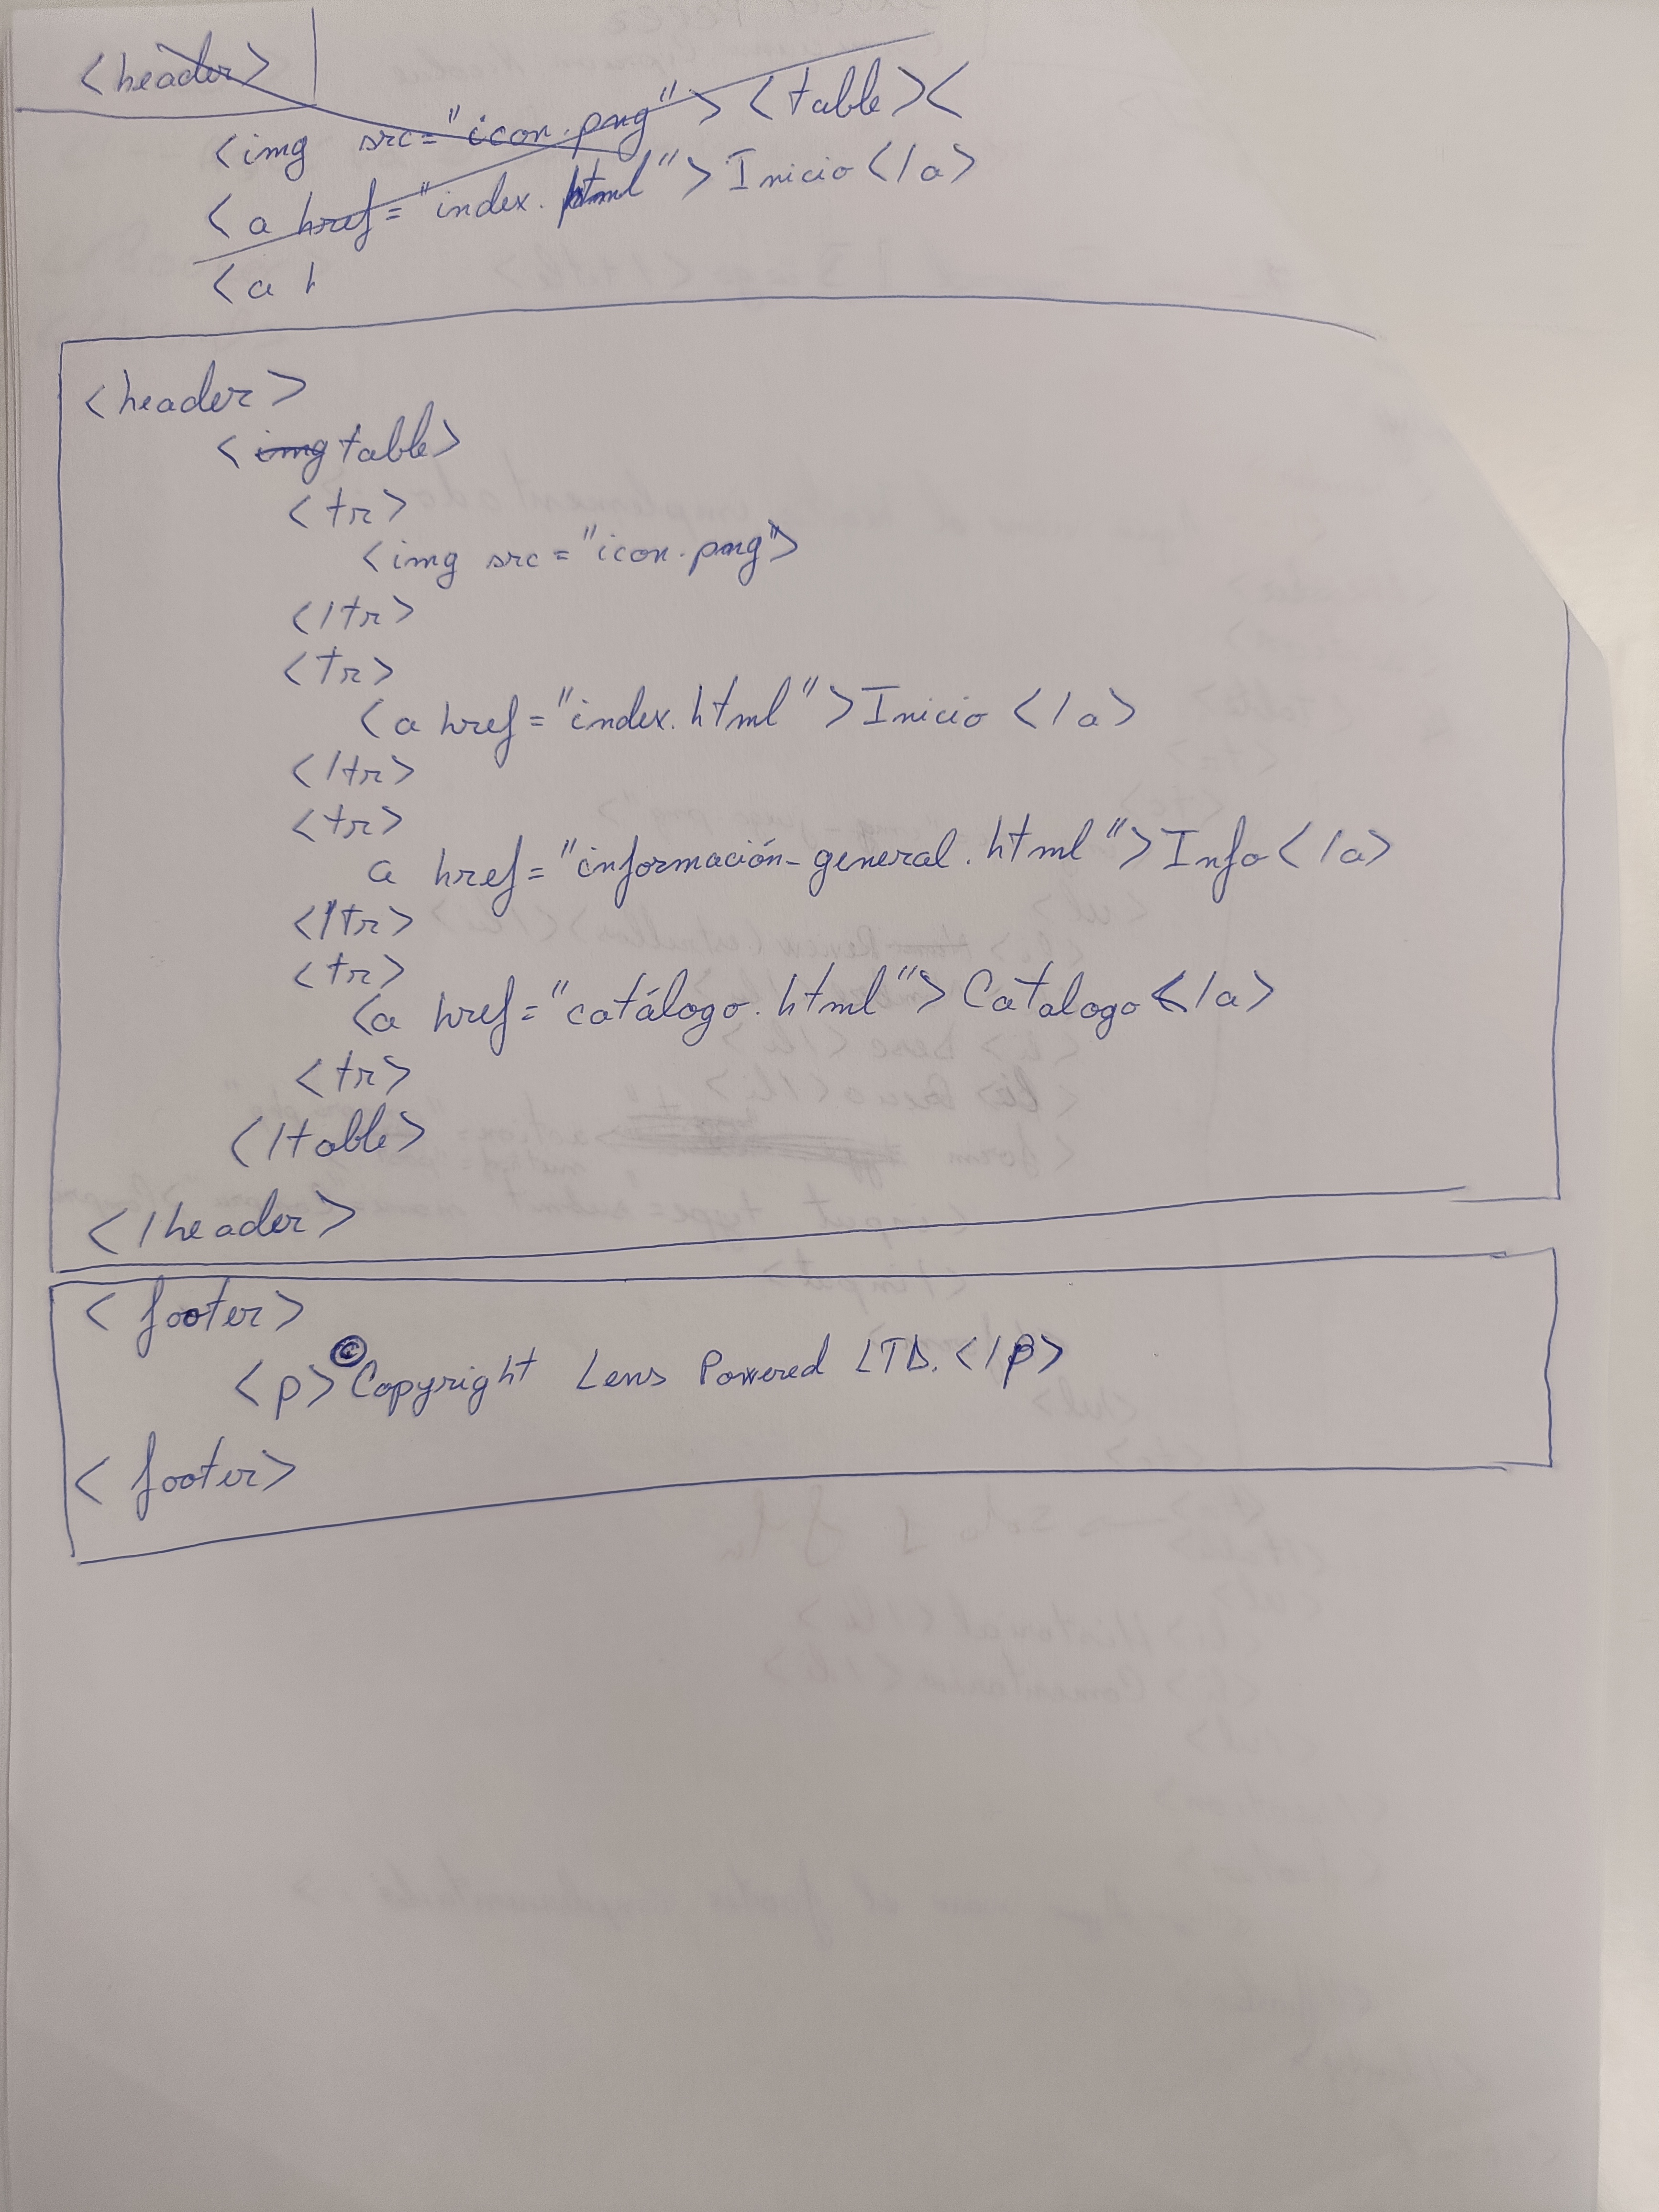 <header>
<img src="icon.png"> <table><
<a href="index.html">Inicio</a>
<a h
<header>
<img table>
<tr>
<img src="icon.png">
</tr>
<tr>
<a href="index.html">Inicio </a>
</tr>
<tr>
a href="información-general.html">Info</a>
</tr>
<tr>
<a href="catálogo.html">Catalogo</a>
<tr>
</table>
</header>
<footer>
<p>©Copyright Lens Powered LTD.</p>
<footer>